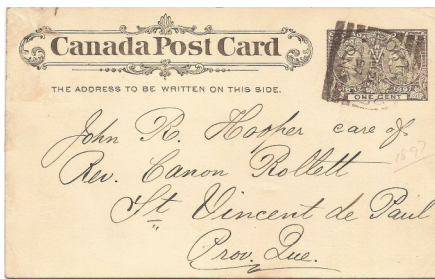 Canada Post Card
THE ADDRESS TO BE WRITTEN ON THIS SIDE.
ONE CENT
John R. Hooper care of
Rev. Canon Rollett
1897
St Vincent de Paul
Prov. Que.